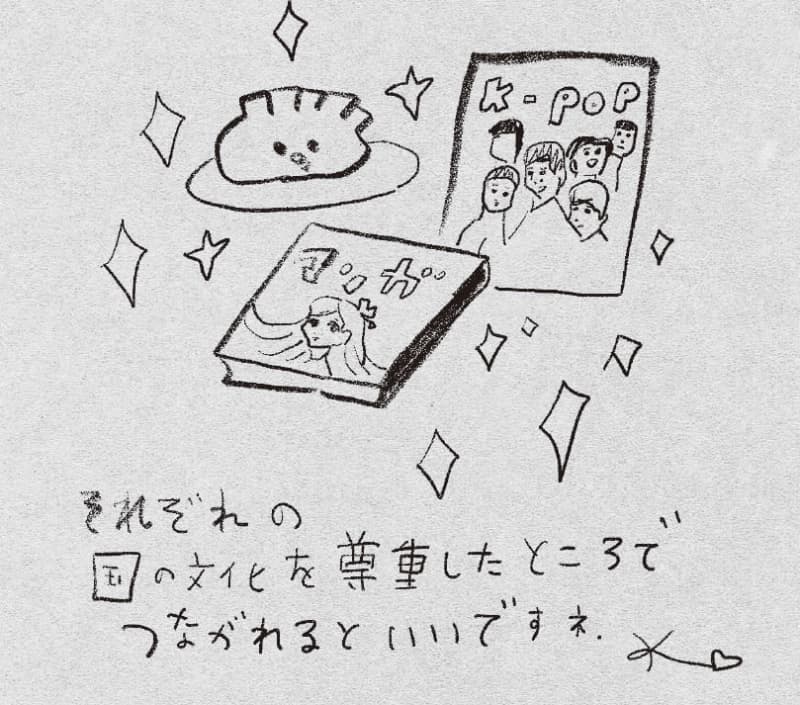 K-POP
マンガ
それぞれの
国の文化を尊重したところで
つながれるといいですネ.